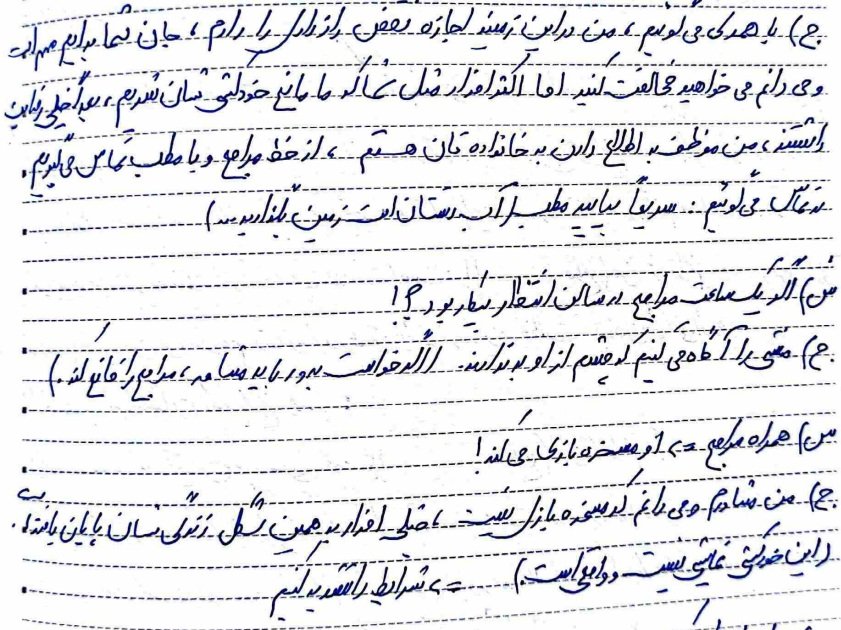 ج) با همدلی می‌گوئیم، من در این زمینه اجازه نقض رازداری را دارم، جان شما برایم مهم است
و می دانم می خواهید مخالفت کنید اما اکثر افراد مثل شما که ما مانع خودکشی شان شدیم، بعداً خیلی رضایت
داشتند، من موظف به اطلاع دادن به خانواده تان هستم، از خط مراجع و یا مطب تماس می گیریم.
در تماس می گوئیم: سریعاً بیایید مطب (آب دستتان است زمین بگذارید...)
س) اگر یک ساعت مراجع در سالن انتظار بیکار بود؟!
ج) منشی را آگاه می کنیم که چشم از او برندارند. (اگر خواست برود باید مشاور، مراجع را قانع کند.)
س) همراه مراجع => او مسخره بازی می کند!
ج) من مشاورم و می دانم که مسخره بازی نیست، خیلی افراد به همین شکل زندگی شان پایان یافته.
(این خودکشی نمایشی نیست و واقعی است.) => شرایط را تشدید کنیم